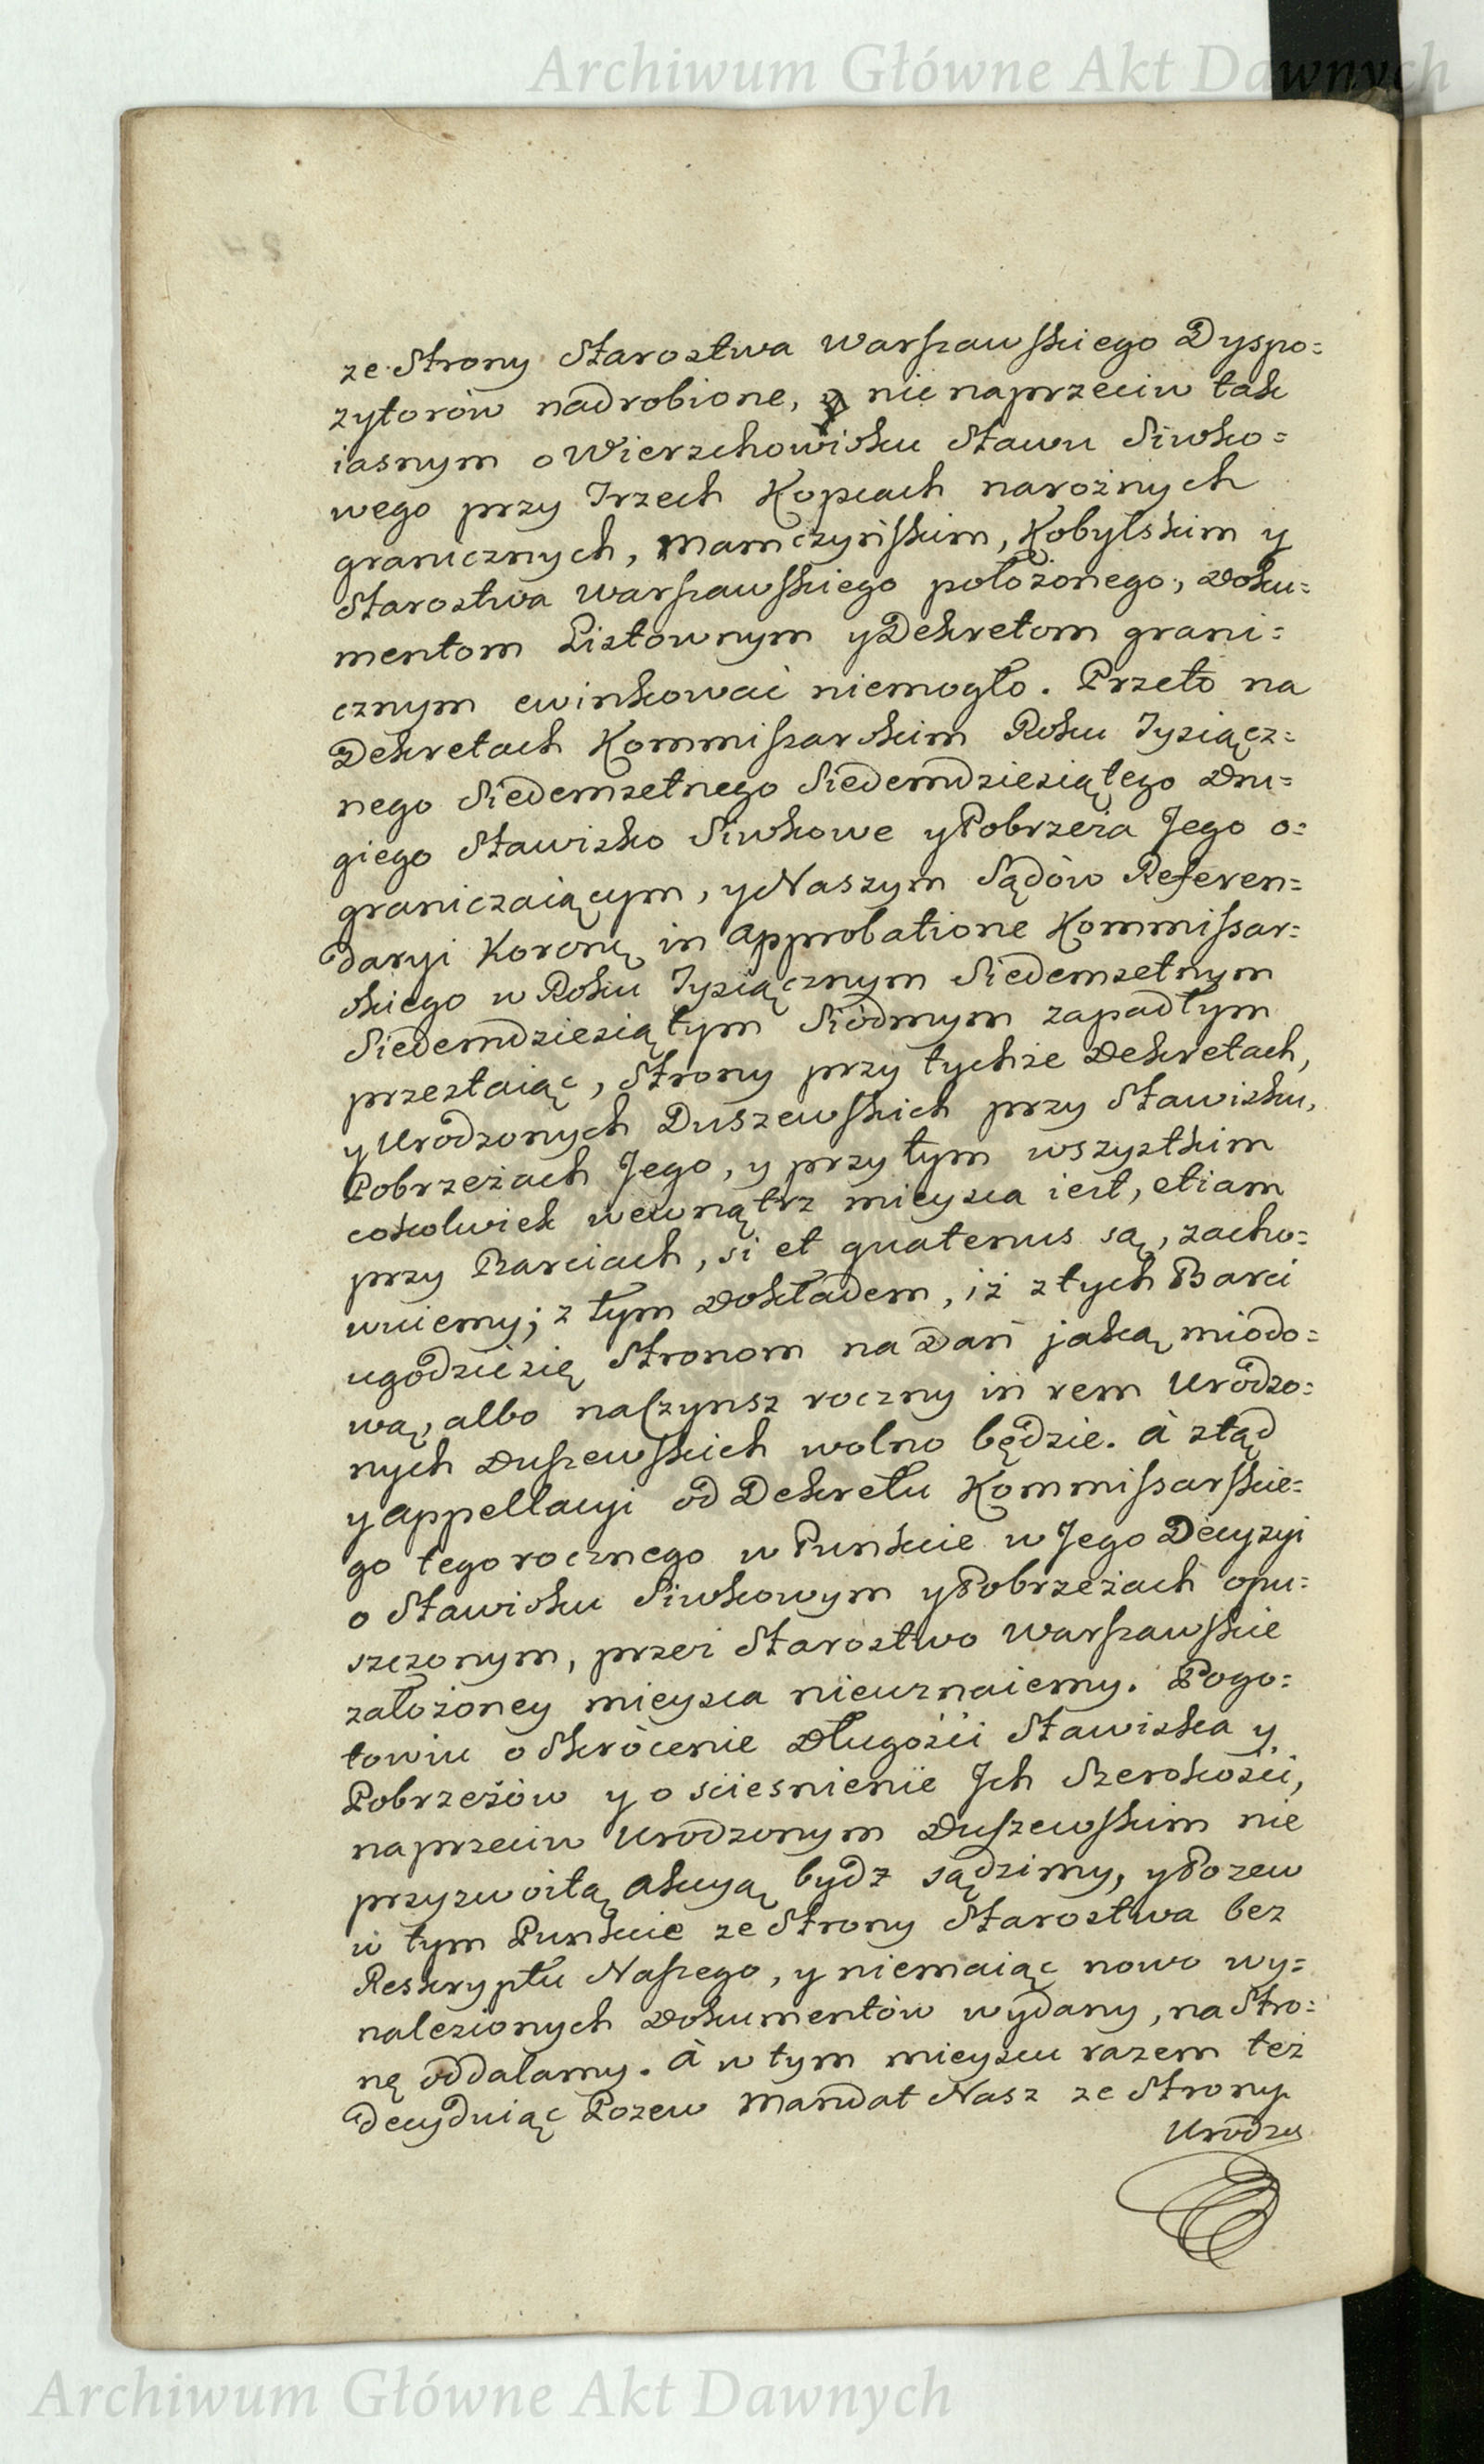 Archiwum Główne Akt Dawnych
ze Strony Starostwa Warszawskiego Dyspo=
zytorów nadrobione, y nic naprzeciw tak
iasnym o Wierzchowisku Stawu Siwko=
wego przy Trzech Kopcach narożnych
granicznych, Mamczyńskim, Kobylskim y
Starostwa Warszawskiego położonego, Doku=
mentom Listownym y Dekretom grani=
cznym ewinkować niemogło. Przeto na
Dekretach Kommissarskim Roku Tysiącz=
nego Siedemsetnego Siedemdziesiątego Dru=
giego Stawisko Siwkowe y Pobrzeża Jego o=
graniczaiącym, y Naszym Sądów Referen=
daryi Koronę in Approbatione Kommissar=
skiego w Roku Tysiącznym Siedemsetnym
Siedemdziesiątym Siódmym zapadłym
przestaiąc, Strony przy tychże Dekretach,
y Urodzonych Duszewskich przy Stawisku,
Pobrzeżach Jego, y przy tym wszystkim
cokolwiek wewnątrz mieysca iest, etiam
przy Barciach, si et quatenus są, zacho=
wuiemy; z tym Dokładem, iż z tych Barci
ugodzić się Stronom na Dań jaką miodo=
wą, albo na Czynsz roczny in rem Urodzo=
nych Duszewskich wolno będzie. à ztąd
y Appellacyi od Dekretu Kommissarskie=
go tegorocznego w Punkcie w Jego Decyzyi
o Stawisku Siwkowym y Pobrzeżach opu=
szczonym, przez Starostwo Warszawskie
założoney mieysca nieuznaiemy. Pogo=
towiu o Skrócenie Długości Stawiska y
Pobrzeżów y o ścieśnienie Jch Szerokości,
naprzeciw Urodzonym Duszewskim nie
przyzwoitą Akcyą bydz sądzimy, y Pozew
w tym Punkcie ze Strony Starostwa bez
Reskryptu Naszego, y niemaiąc nowo wy=
nalezionych Dokumentów wydany, na Stro=
nę oddalamy. à w tym mieyscu razem też
decyduiąc Pozew Mandat Nasz ze Strony
Urodzo
Archiwum Główne Akt Dawnych